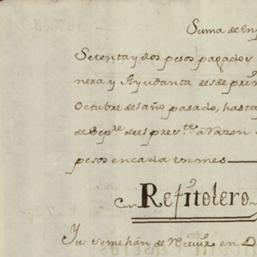 Suma de En
Setenta y dos pesos pagados
nera y Ayudanta desde prim
Octubre del año pasado, hasta
de Sepre. del preste. a razon
pesos en cada un mes
Refitolero
Yt. se me hán de en D